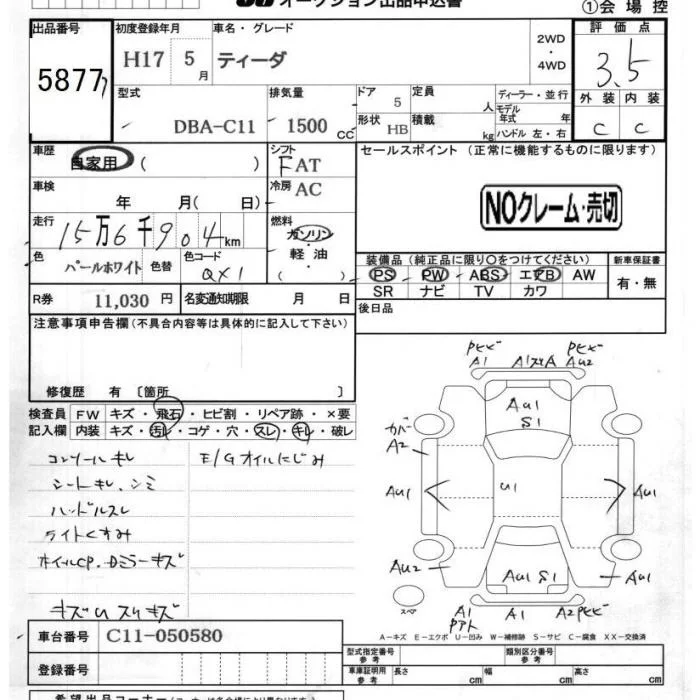 オークション出品申込書
①会場控
出品番号 初度登録年月 車名・グレード 評価点
5877 H17 5月 ティーダ 2WD・4WD 3.5
型式 排気量 ドア 5 定員 人 ディーラー・並行 外装 内装
DBA-C11 1500 CC 形状 HB 積載 kg モデル年式 年 ハンドル 左・右 C C
車歴 自家用 ( ) シフト FAT セールスポイント (正常に機能するものに限ります)
車検 年 月( 日) 冷房 AC
NOクレーム・売切
走行 15万6千904km 燃料 ガソリン・軽油 ( )
色 パールホワイト 色替 色コード QX1
装備品 (純正品に限り○をつけてください) 新車保証書
PS PW ABS エアB AW 有・無
SR ナビ TV カワ
R券 11,030 円 名変通知期限 月 日 後日品
注意事項申告欄 (不具合内容等は具体的に記入して下さい)
修復歴 有 〔箇所 〕
検査員 FW キズ・飛石・ヒビ割・リペア跡・×要
記入欄 内装 キズ・汚レ・コゲ・穴・スレ・キレ・破レ
コンソールキレ E/Gオイルにじみ
シートキレ、シミ
ハンドルスレ
ライトくすみ
ホイルCP、Dミラーキズ
キズuスリキズ
Pヒビ A1 A1スリA Pヒビ Au2
Au1 S1
カバー A2
Au1 u1 Au1
Au2 Au1 S1 Au1
スペア A1 A1 A2Pヒビ
A-キズ E-エクボ U-凹み W-補修跡 S-サビ C-腐食 XX-交換済
車台番号 C11-050580
登録番号
型式指定番号 参考 類別区分番号 参考
車庫証明用 参考 長さ cm 幅 cm 高さ cm
希望出品コーナー